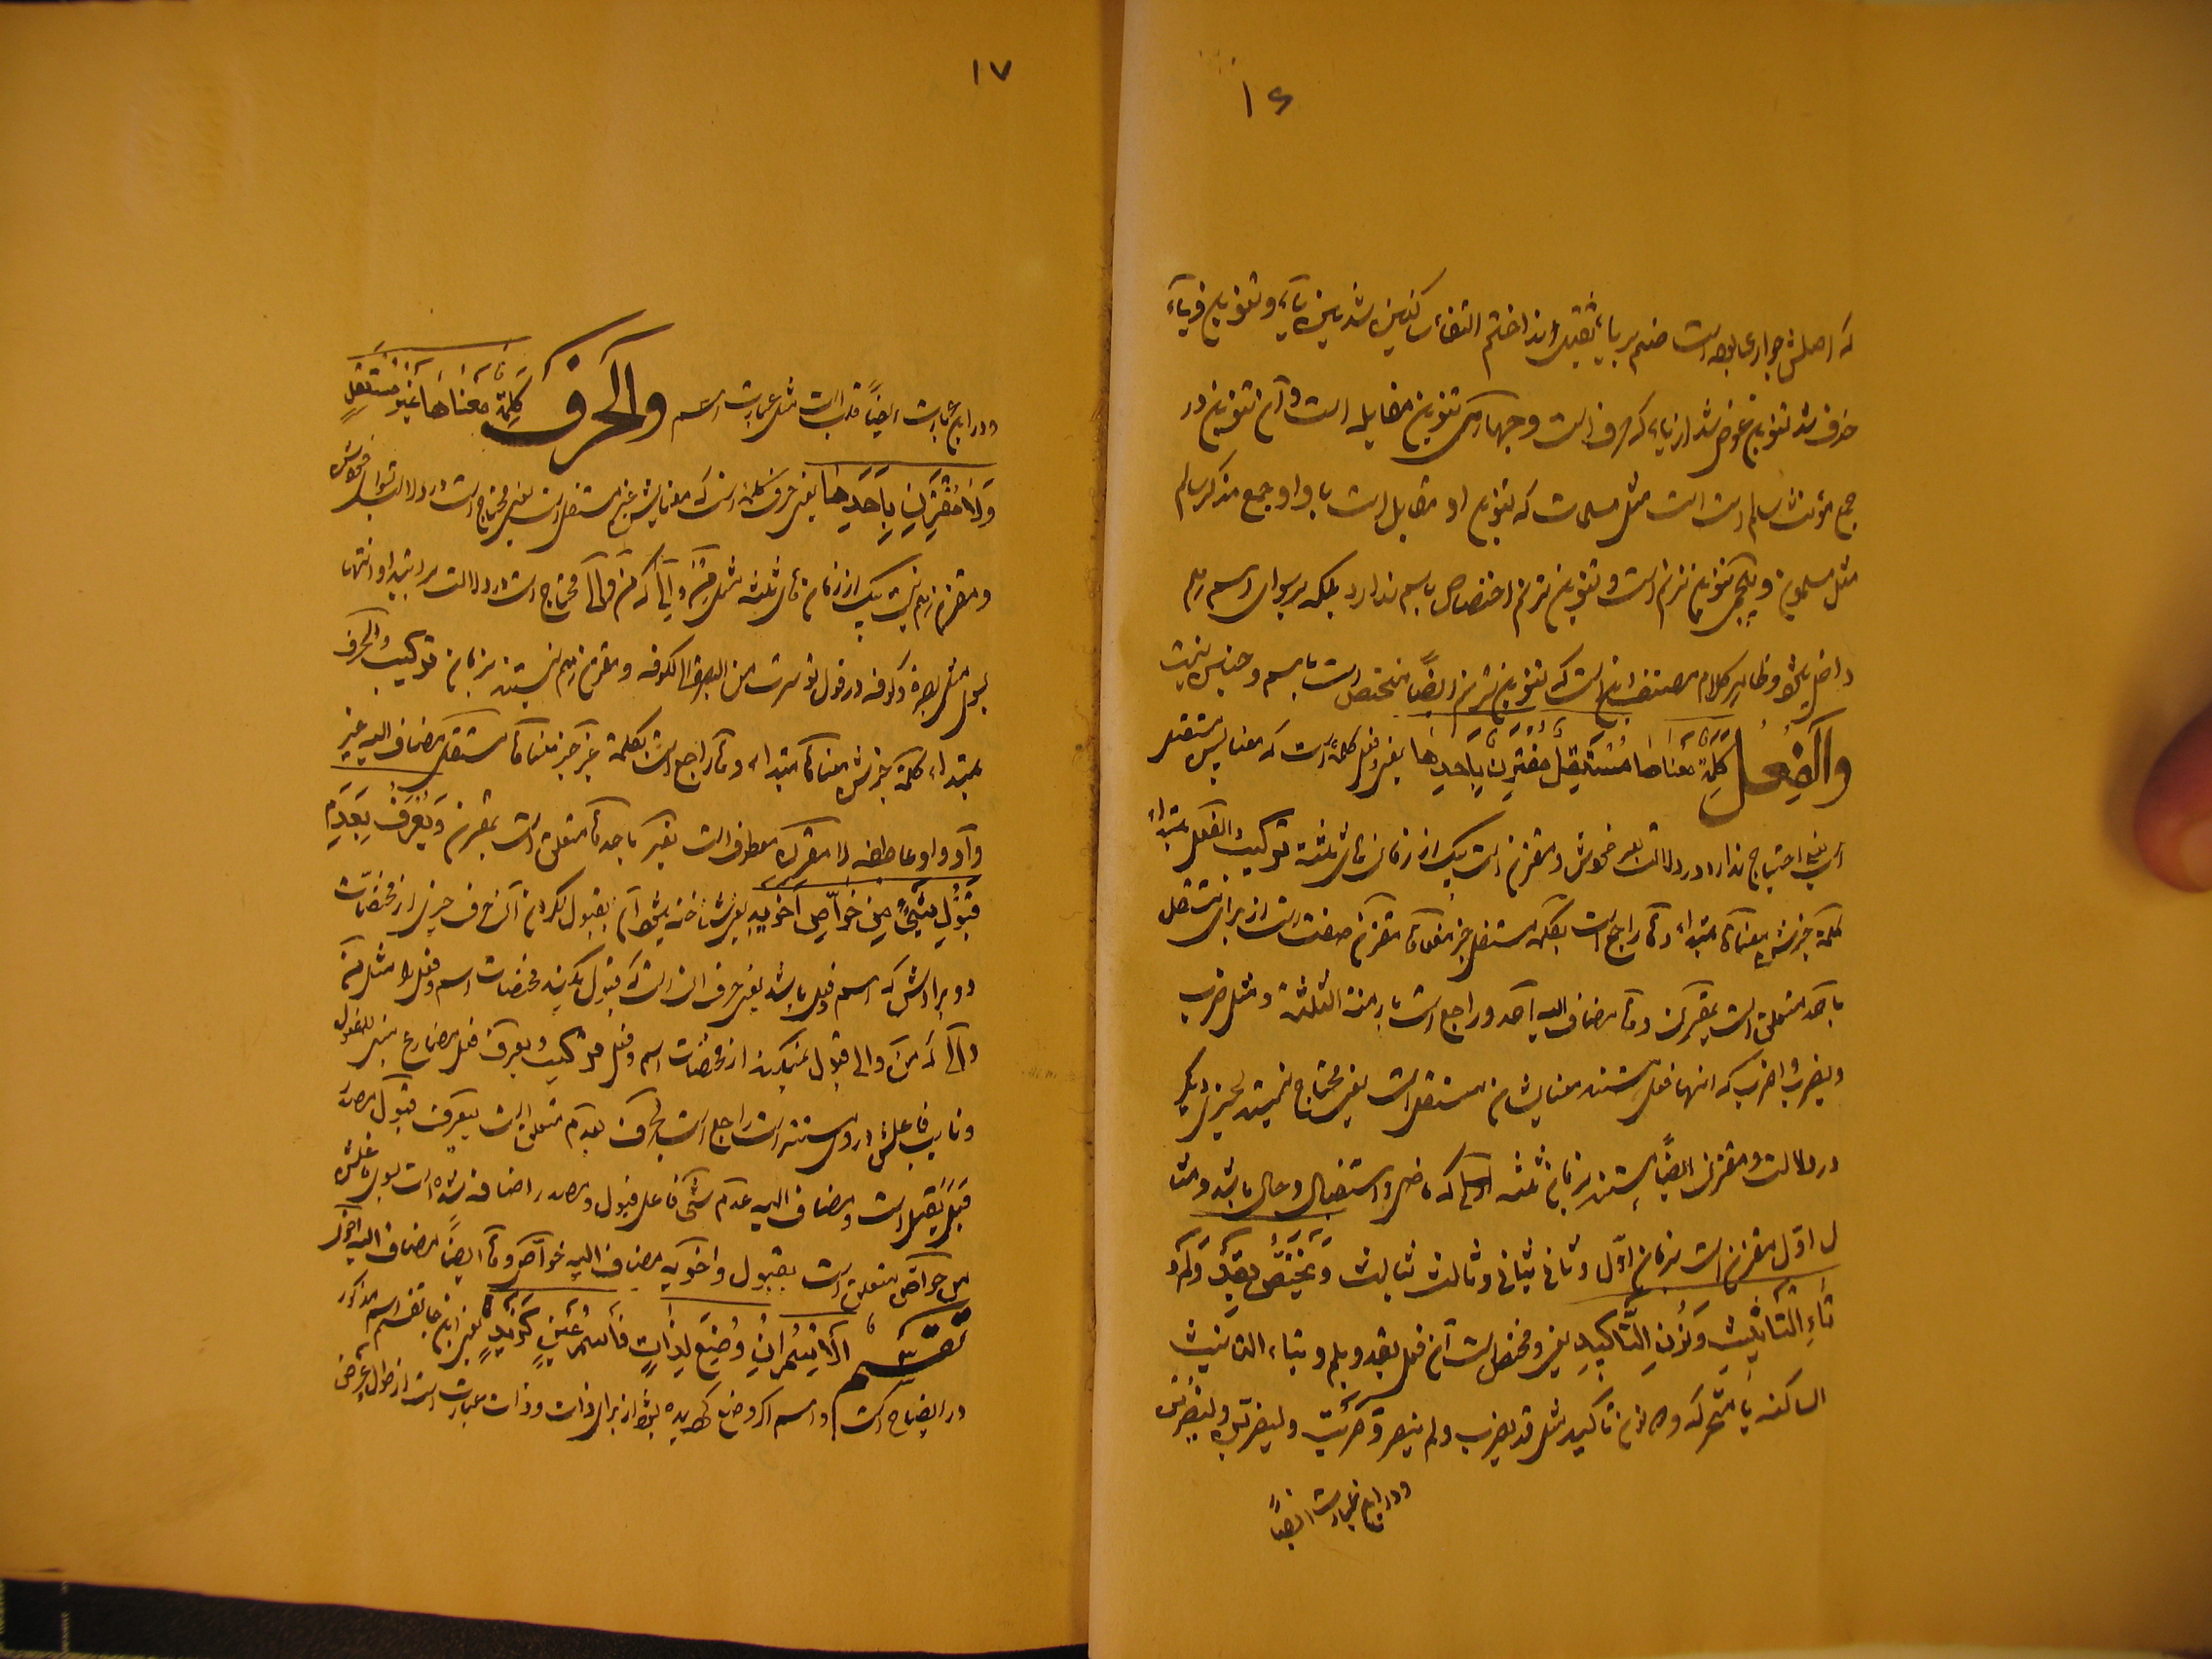 ۱۶
که اصلش جواری بوده است ضمه بر یا ثقیل انداختیم التقاء ساکنین شد میان یاء و تنوین و یاء
حذف شد تنوین عوض شد از یاء که حرف است و چهارمی تنوین مقابله است و آن تنوین در
جمع مؤنث سالم است مثل مسلمات که تنوین او مقابل است با واو جمع مذکر سالم
مثل مسلمون و پنجمی تنوین ترنم است و تنوین ترنم اختصاص باسم ندارد بلکه بر سوای اسم هم
داخل میشود و ظاهر کلام مصنف این است که تنوین ترنم ایضاً مختص است باسم و چنین نیست
وَالْفِعْلُ کَلِمَةٌ مَعْناها مُسْتَقِلٌّ مُقْتَرِنٌ بِاَحَدِها یعنی و فعل کلمه است که معنایش مستقل
است یعنی احتیاج ندارد در دلالت بغیر خودش و مقترن است بیک از زمانهای ثلثه ترکیب والفعل مبتداء
کلمة خبرش معناها مبتداء و ها راجع است بکلمه مستقل خبر معناها مقترن صفت است از برای مستقل
باحد متعلق است بمقترن و ها مضاف الیه احد و راجع است بازمنة الثلثة و مثل ضرب
و یضرب و اضرب که اینها فعل هستند معنایشان مستقل است یعنی محتاج نیستند بچیزی دیگر
در دلالت و مقترن ایضاً هستند بزمان ثلثه که ماضی و استقبال و حال باشد و مثا
ل اوّل مقترن است بزمان اوّل و ثانی بثانی و ثالث بثالث وَ یَخْتَصُّ بِقَدْ وَ لَمْ وَ
تاءِ التَّأنیثِ وَ نُونِ التَّاکیدِ یعنی و مختص است آن فعل بقد و بلم و بتاء التانیث
الساکنه یا متحرکه و نون تاکید مثل قد یضرب و لم ینصر و ضربت و لیضربن و لینصرن
و در این عبارت ایضاً
۱۷
و در این عبارت ایضاً قلب است مثل عبارت اسم وَالْحَرْفُ کَلِمَةٌ مَعْناها غَیْرُ مُسْتَقِلٍّ
وَ لا مُقْتَرِنٍ بِاَحَدِها یعنی حرف کلمه است که معنایش غیر مستقل است یعنی محتاج است در دلالت بسوای خودش
و مقترن هم نیست بیک از زمانهای ثلثه مثل مِنْ و اِلی که من و الی محتاج است در دلالت بر ابتدا و انتها
بسوی مثل بصره و کوفه در قول تو سرت من البصرة الی الکوفه و مقترن هم نیستند بزمان ترکیب والحرف
مبتداء کلمة خبرش معناها مبتداء و ها راجع است بکلمة غیر خبر معناها مستقل مضاف الیه غیر
واو واو عاطفه لا مقترن معطوف است بغیر باحدها متعلق است بمقترن وَ یُعْرَفُ بِعَدَمِ
قَبُولِ شَیْءٍ مِنْ خَواصِّ اَخَوَیْهِ یعنی شناخته میشود آن بقبول نکردن آن حرف چیزی از مختصات
دو برادرش که اسم و فعل باشد یعنی حرف آن است که قبول نکند مختصات اسم و فعل را مثل من
و الی که من و الی قبول نمیکند از مختصات اسم و فعل ترکیب و یعرف فعل مضارع مبنی للمفعول
و نایب فاعلش در وی مستتر است راجع است بحرف بعدم متعلق است بیعرف قبول مصدر
قَبِلَ یَقْبَلُ است و مضاف الیه عدم شیء فاعل قبول و مصدر اضافه شده است بسوی فاعلش
من خواص متعلق است بقبول و اخویه مضاف الیه خواص و ها ایضاً مضاف الیه اخوی
تقسیم اَلاِسْمُ اِنْ وُضِعَ لِذاتٍ فَاسْمُ عَیْنٍ کَزَیْدٍ یعنی این جا تقسیم اسم مذکور
در ایضاح است و اسم اگر وضع کرده شود از برای ذات و ذات عبارت است از طول و عرض